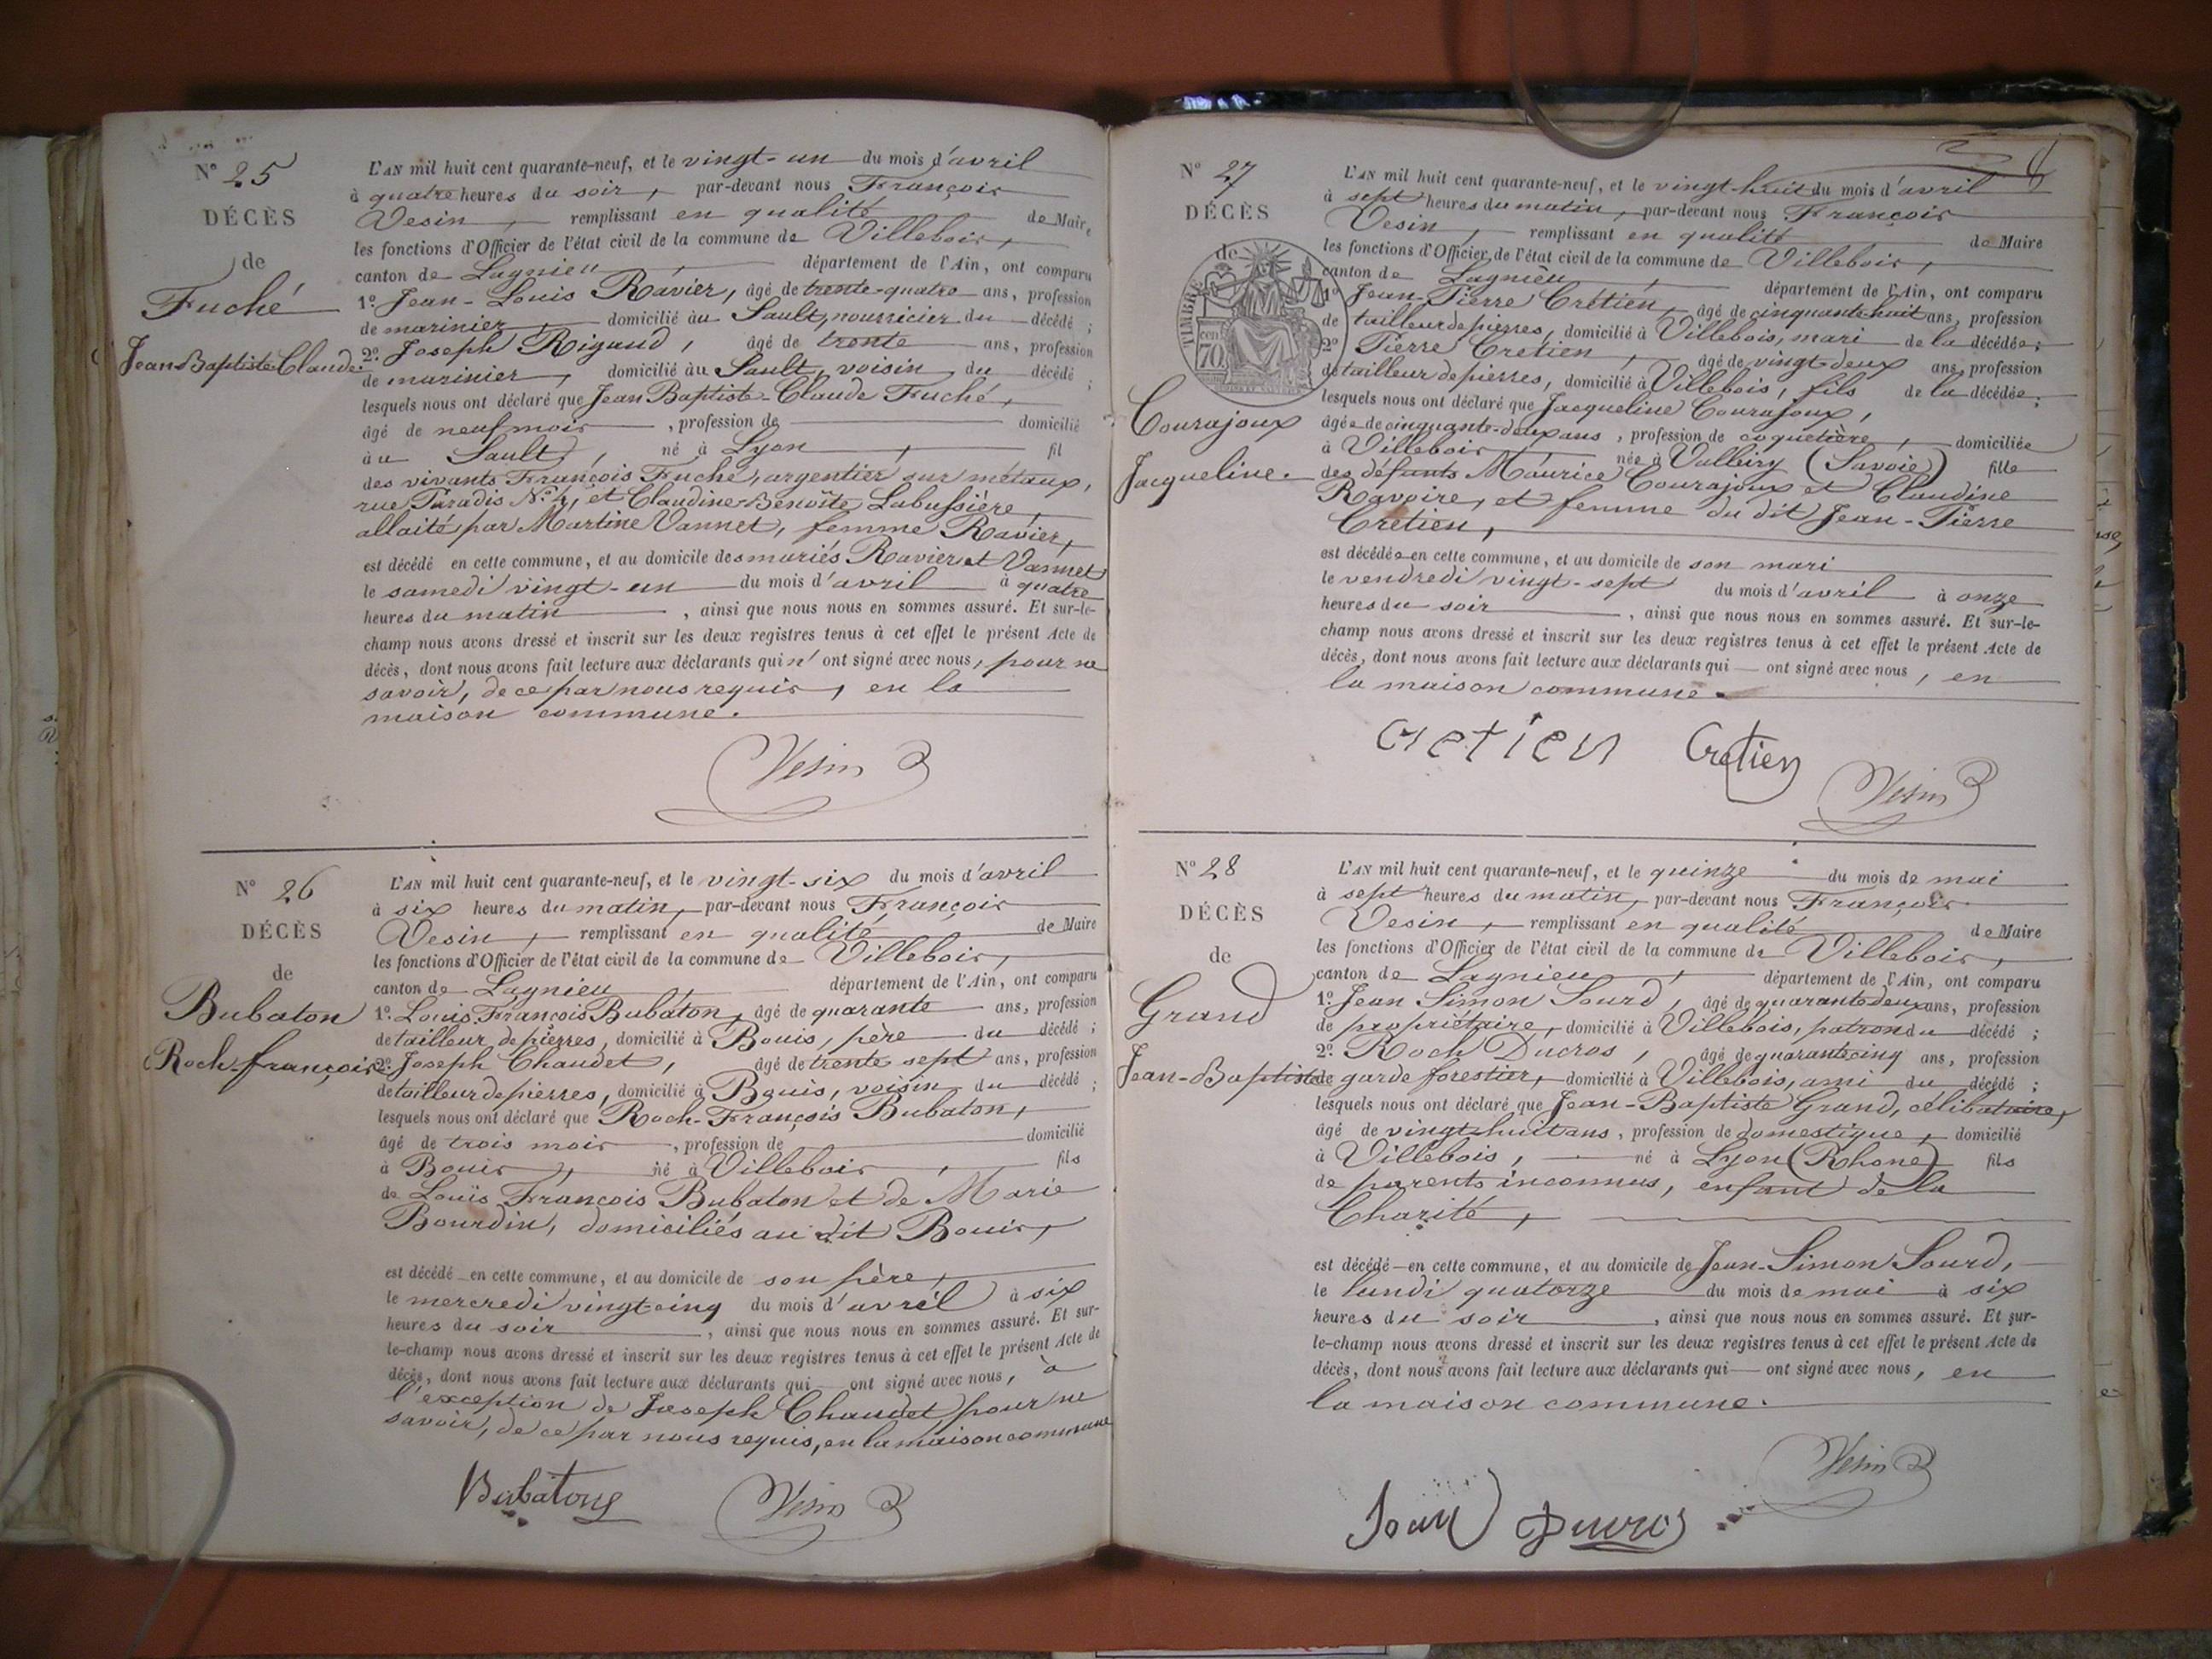 N° 25
DÉCÈS
de
Fuché
Jean Baptiste Claude.
L'AN mil huit cent quarante-neuf, et le vingt-un du mois d'avril
à quatre heures du soir, par-devant nous François
Vesin, remplissant en qualité de Maire
les fonctions d'Officier de l'état civil de la commune de Villebois,
canton de Lagnieu département de l'Ain, ont comparu
1°. Jean-Louis Ravier, âgé de trente-quatre ans, profession
de marinier, domicilié àu Sault, nourricier du décédé ;
2°. Joseph Rigaud, âgé de trente ans, profession
de marinier, domicilié àu Sault, voisin du décédé ;
lesquels nous ont déclaré que Jean Baptiste-Claude Fuché,
âgé de neuf mois, profession de domicilié
àu Sault, né à Lyon, fil
des vivants François Fuché, argentier sur métaux,
rue Paradis N° 4, et Claudine-Benoîte Labussière,
allaité par Martine Vannet, femme Ravier,
est décédé en cette commune, et au domicile des mariés Ravier et Vannet
le samedi vingt-un du mois d'avril à quatre
heures du matin, ainsi que nous nous en sommes assuré. Et sur-le-
champ nous avons dressé et inscrit sur les deux registres tenus à cet effet le présent Acte de
décès, dont nous avons fait lecture aux déclarants qui n' ont signé avec nous, pour ne
savoir, de ce par nous requis, en la
maison commune.
Vesin
N° 26
DÉCÈS
de
Bubaton
Roch-françois
L'AN mil huit cent quarante-neuf, et le vingt-six du mois d'avril
à six heures du matin, par-devant nous François
Vesin, remplissant en qualité de Maire
les fonctions d'Officier de l'état civil de la commune de Villebois,
canton de Lagnieu département de l'Ain, ont comparu
1°. Louis François Bubaton, âgé de quarante ans, profession
de tailleur de pierres, domicilié à Bouis, père du décédé ;
2°. Joseph Chaudet, âgé de trente sept ans, profession
de tailleur de pierres, domicilié à Bouis, voisin du décédé ;
lesquels nous ont déclaré que Roch-François Bubaton,
âgé de trois mois, profession de domicilié
à Bouis, né à Villebois, fils
de Louis François Bubaton et de Marie
Bourdin, domiciliés au dit Bouis,
est décédé en cette commune, et au domicile de son père,
le mercredi vingt cinq du mois d'avril à six
heures du soir, ainsi que nous nous en sommes assuré. Et sur-
le-champ nous avons dressé et inscrit sur les deux registres tenus à cet effet le présent Acte de
décès, dont nous avons fait lecture aux déclarants qui ont signé avec nous, à
l'exception de Joseph Chaudet pour ne
savoir, de ce par nous requis, en la maison commune
Bubaton
Vesin
N° 27
DÉCÈS
de
TIMBRE
cen 70
Courajoux
Jacqueline.
L'AN mil huit cent quarante-neuf, et le vingt-huit du mois d'avril
à sept heures du matin, par-devant nous François
Vesin, remplissant en qualité de Maire
les fonctions d'Officier de l'état civil de la commune de Villebois,
canton de Lagnieu, département de l'Ain, ont comparu
1° Jean-Pierre Crétien, âgé de cinquante-huit ans, profession
de tailleur de pierres, domicilié à Villebois, mari de la décédée ;
2° Pierre Cretien, âgé de vingt-deux ans, profession
de tailleur de pierres, domicilié à Villebois, fils de la décédée ;
lesquels nous ont déclaré que Jacqueline Courajoux,
âgée de cinquante-deux ans, profession de coquetière, domiciliée
à Villebois née à Valleiry (Savoie) fille
des défunts Maurice Courajoux et Claudine
Ravoire, et femme du dit Jean-Pierre
Cretien,
est décédée en cette commune, et au domicile de son mari
le vendredi vingt-sept du mois d'avril à onze
heures du soir, ainsi que nous nous en sommes assuré. Et sur-le-
champ nous avons dressé et inscrit sur les deux registres tenus à cet effet le présent Acte de
décès, dont nous avons fait lecture aux déclarants qui ont signé avec nous, en
la maison commune.
cretien Cretien
Vesin
N° 28
DÉCÈS
de
Grand
Jean-Baptiste
L'AN mil huit cent quarante-neuf, et le quinze du mois de mai
à sept heures du matin, par-devant nous François
Vesin, remplissant en qualité de Maire
les fonctions d'Officier de l'état civil de la commune de Villebois,
canton de Lagnieu, département de l'Ain, ont comparu
1°. Jean Simon Sourd, âgé de quarante deux ans, profession
de propriétaire, domicilié à Villebois, patron du décédé ;
2°. Roch Ducros, âgé de quarante cinq ans, profession
de garde forestier, domicilié à Villebois, ami du décédé ;
lesquels nous ont déclaré que Jean-Baptiste Grand, célibataire,
âgé de vingt huit ans, profession de domestique, domicilié
à Villebois, né à Lyon (Rhone) fils
de parents inconnus, enfant de la
Charité,
est décédé en cette commune, et au domicile de Jean-Simon Sourd,
le lundi quatorze du mois de mai à six
heures du soir, ainsi que nous nous en sommes assuré. Et sur-
le-champ nous avons dressé et inscrit sur les deux registres tenus à cet effet le présent Acte de
décès, dont nous avons fait lecture aux déclarants qui ont signé avec nous, en
la maison commune.
Vesin
Ducros